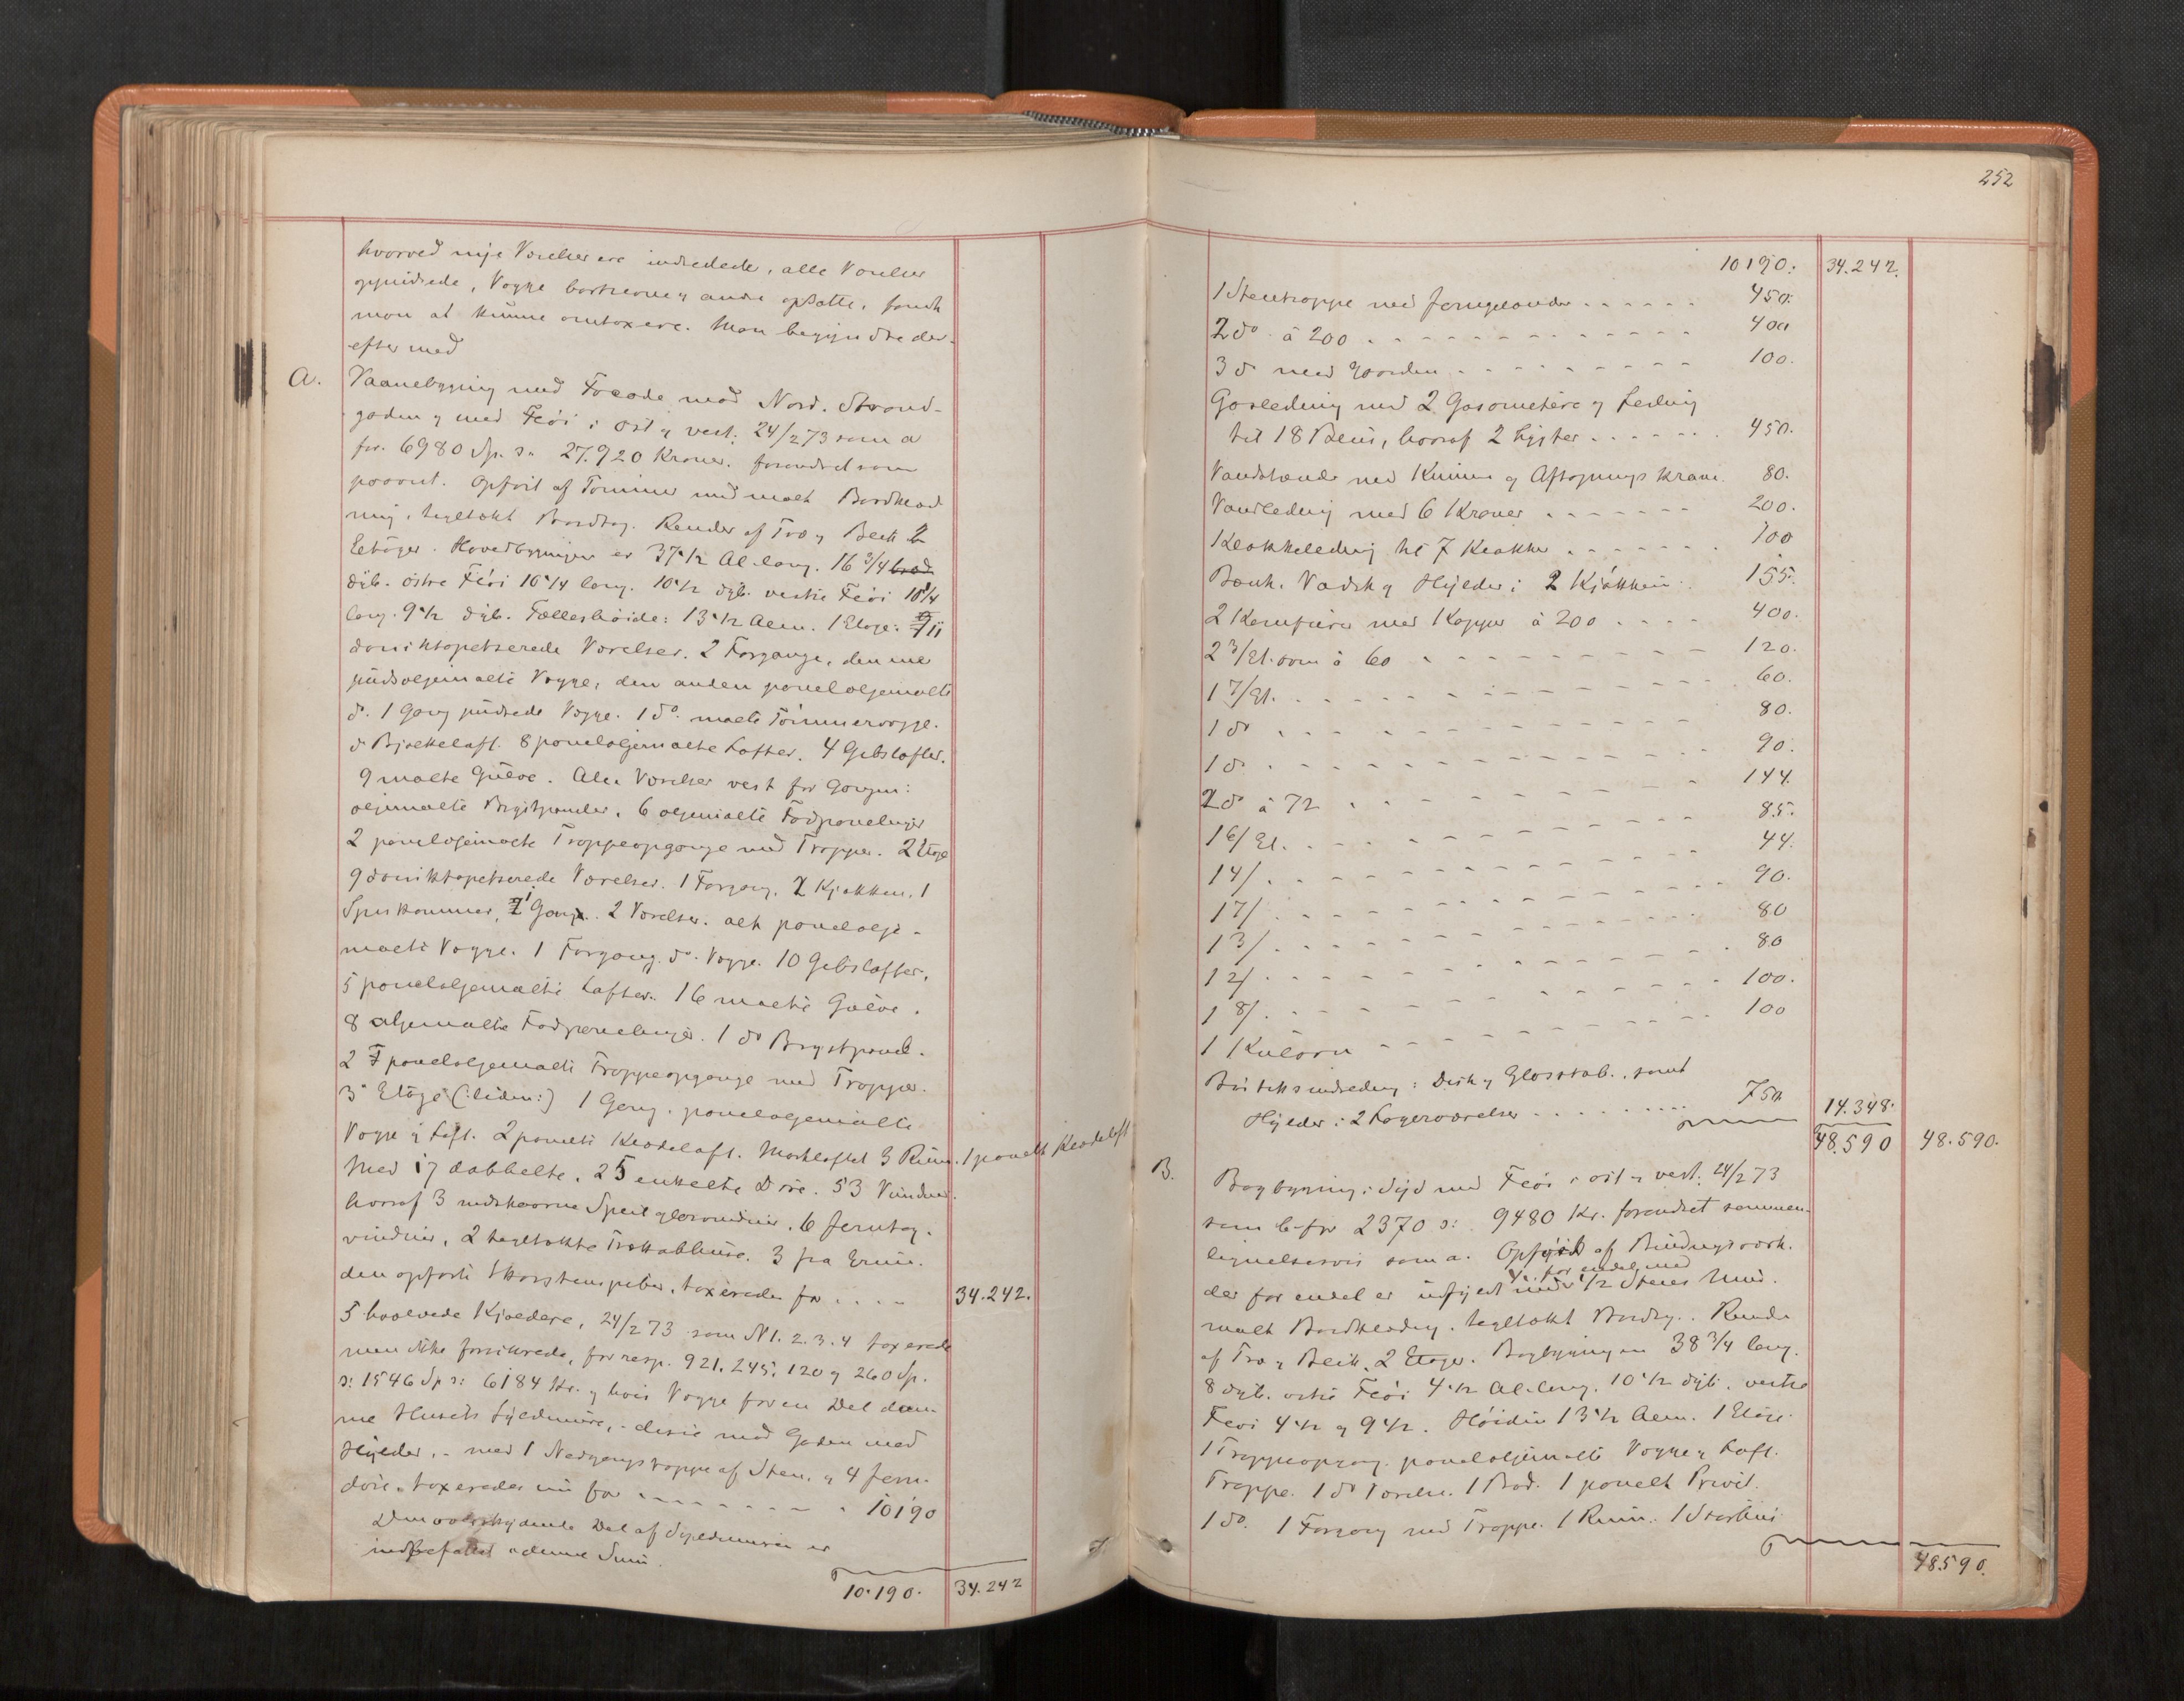 hvorved nye Værelser ere indredede, alle Værelser
oppudsede, Vægge borttagne og andre opsatte, fandt
man at kunne omtaxere. Man begyndte der-
efter med
A. Vaanebygning med Facade mod Nord. Strand-
gaden og med Fløi i Øst og vest: 24/2 73 som a
for 6980 Sp. ɔ: 27.920 Kroner. forandret som
passent. Opført af Tømmer med malt Bordklæd
ning, tegltækt Bordtag. Render af Træ og Blek 2
Etager. Hovedbygningen er 37 1/2 Al. lang. 16 3/4 bred
dyb. østre Fløi 10 1/4 lang. 10 1/2 dyb. vestre Fløi 10 1/4
lang. 9 1/2 dyb. Fælleshøide: 13 1/2 Alen. 1 Etage: 9 11
donnikstapetserede Værelser. 2 Forgange, den ene
pudsoljemalte Vægge, den anden paneloljemalte
do. 1 Gang pudsede Vægge. 1 do. malte Tømmervægge.
do Bjælkeloft. 8 paneloljemalte Lofter. 4 Gibslofter.
9 malte Gulve. Alle Værelser vest for Gangen:
oljemalte Brystpaneler. 6 oljemalte Fodpanelinger
2 paneloljemalte Trappeopgange med Trapper. 2 Etage
9 donnikstapetserede Værelser. 1 Forgang. 2 Kjøkken, 1
Spiskammer, 1 Gang. 2 Værelser. alt panelolje-
malte Vægge. 1 Forgang do. Vægge. 10 Gibslofter.
5 paneloljemalte Lofter. 16 malte Gulve.
8 oljemalte Fodpanelinger. 1 do Brystpanel.
2 paneloljemalte Trappeopgange med Trapper.
3e Etage (: liden :) 1 Gang. paneloljemalte
Vægge og Loft. 2 panelte Kvadeloft. Mørkloftet 3 Rum. 1 panelt Kvadeloft
Med 17 dobbelte. 25 enkelte Døre. 53 Vinduer.
hvoraf 3 udskaarne Speilglasvinduer. 6 Jerntag-
vinduer, 2 tegltækte Takkobhuse. 3 fra Grun-
den opførte Skorstenspiber. taxeredes for .... 34.242.
5 hvælvede Kjældere, 24/2 73 som N 1. 2. 3. 4 taxerede
men ikke forsikrede, for resp. 921. 245. 120 og 260 Sp.
ɔ: 1546 Sp ɔ: 6184 Kr. og hvis Vægge for en Del dan-
ne Husets Syldmure, - disse mod Gaden med
Hylder, - med 1 Nedgangstrappe af Sten. og 4 Jern-
døre. taxeredes nu for - - - - - - 10190
Den overskydende Del af Syldmuren er
indbefattet i denne Sum.
10.190. 34.242
252
10190: 34.242.
1 Stentrappe med Jerngelænder ...... 450.
2 do à 200 ............ 400
3 do ned Gaarden ......... 100.
Gasledning med 2 Gasometere og Ledning
til 18 Blus, hvoraf 2 Lygter ...... 450.
Vandstænder med Kumme og Aftapnings Kran 80.
Vandledning med 6 Kraner ....... 200.
Klokkeledning til 7 Klokker ...... 100
Bænk. Vadsk og Hylder i 2 Kjøkken. 155.
2 Komfurer med Kapper à 200 .... 400.
2 3/Et. ovne à 60 ......... 120.
1 7/Et. ......... 60.
1 do ......... 80.
1 do ......... 90.
2 do à 72 ......... 144.
1 6/Et. ......... 85.
1 4/ ......... 44.
1 7/ ......... 90.
1 3/ ......... 80
1 2/ ......... 80
1 8/ ......... 100.
1 Kulovn ......... 100
Butiksindredning: Disk og Glasskab. samt
Hylder i 2 Lagerværelser ......... 750 14.348.
48.590 48.590.
B. Bagbygning i Syd med Fløi i øst og vest: 24/2 73
som b for 2370 ɔ: 9480 Kr. forandret sammen-
lignelsesvis som a. Opført af Bindingsværk.
der for endel er udfyldt med 1/2 Stens Mur.
malt Bordklædng. tegltækt Bordtag. Render
af Træ og Blek. 2 Etager. Bagbygningen 38 3/4 lang.
8 dyb. østre Fløi 4 1/2 Al. lang. 10 1/2 dyb. vestre
Fløi 4 1/2 og 9 1/2. Høiden 13 1/2 Alen. 1 Etage.
1 Trappeopgang. paneloljemalte Vægge og Loft.
Trappe. 1 do Værelse. 1 Bod. 1 panelt Privet.
1 do. 1 Forgang med Trappe. 1 Rum. 1
48.590.